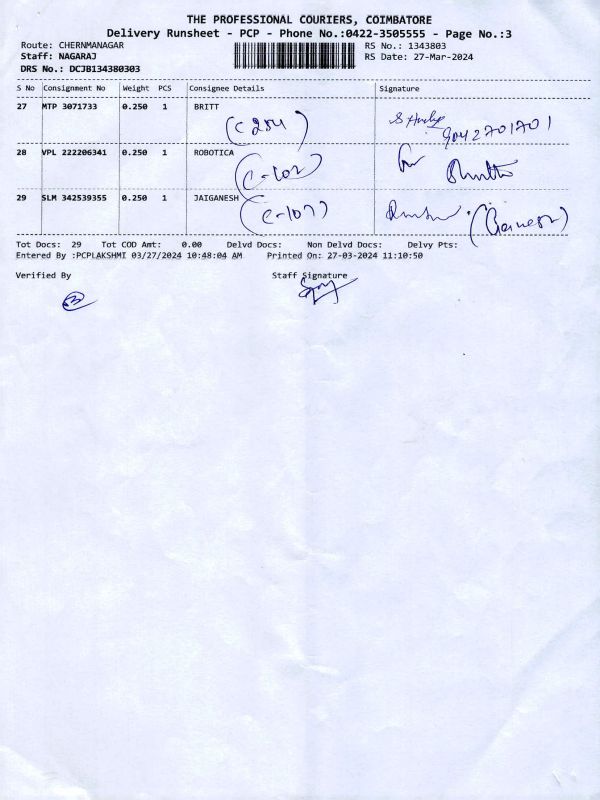 THE PROFESSIONAL COURIERS, COIMBATORE
Delivery Runsheet - PCP - Phone No.:0422-3505555 - Page No.:3
Route: CHERNMANAGAR RS No.: 1343803
Staff: NAGARAJ RS Date: 27-Mar-2024
DRS No.: DCJB134380303
S No Consignment No Weight PCS Consignee Details Signature
27 MTP 3071733 0.250 1 BRITT
(C 204) 9042701701
28 VPL 222206341 0.250 1 ROBOTICA
(C-102)
29 SLM 342539355 0.250 1 JAIGANESH
(C-107) (Ganesh)
Tot Docs: 29 Tot COD Amt: 0.00 Delvd Docs: Non Delvd Docs: Delvy Pts:
Entered By :PCPLAKSHMI 03/27/2024 10:48:04 AM Printed On: 27-03-2024 11:10:50
Verified By Staff Signature